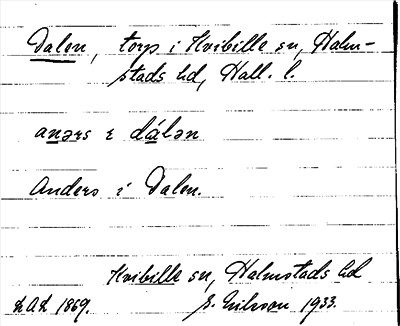 Dalen, torp i Kvibille sn, Halm-
stads hd, Hall. l.
anərs ɛ dálən
Anders i Dalen.
Kvibille sn, Halmstads hd
1869. 1933.